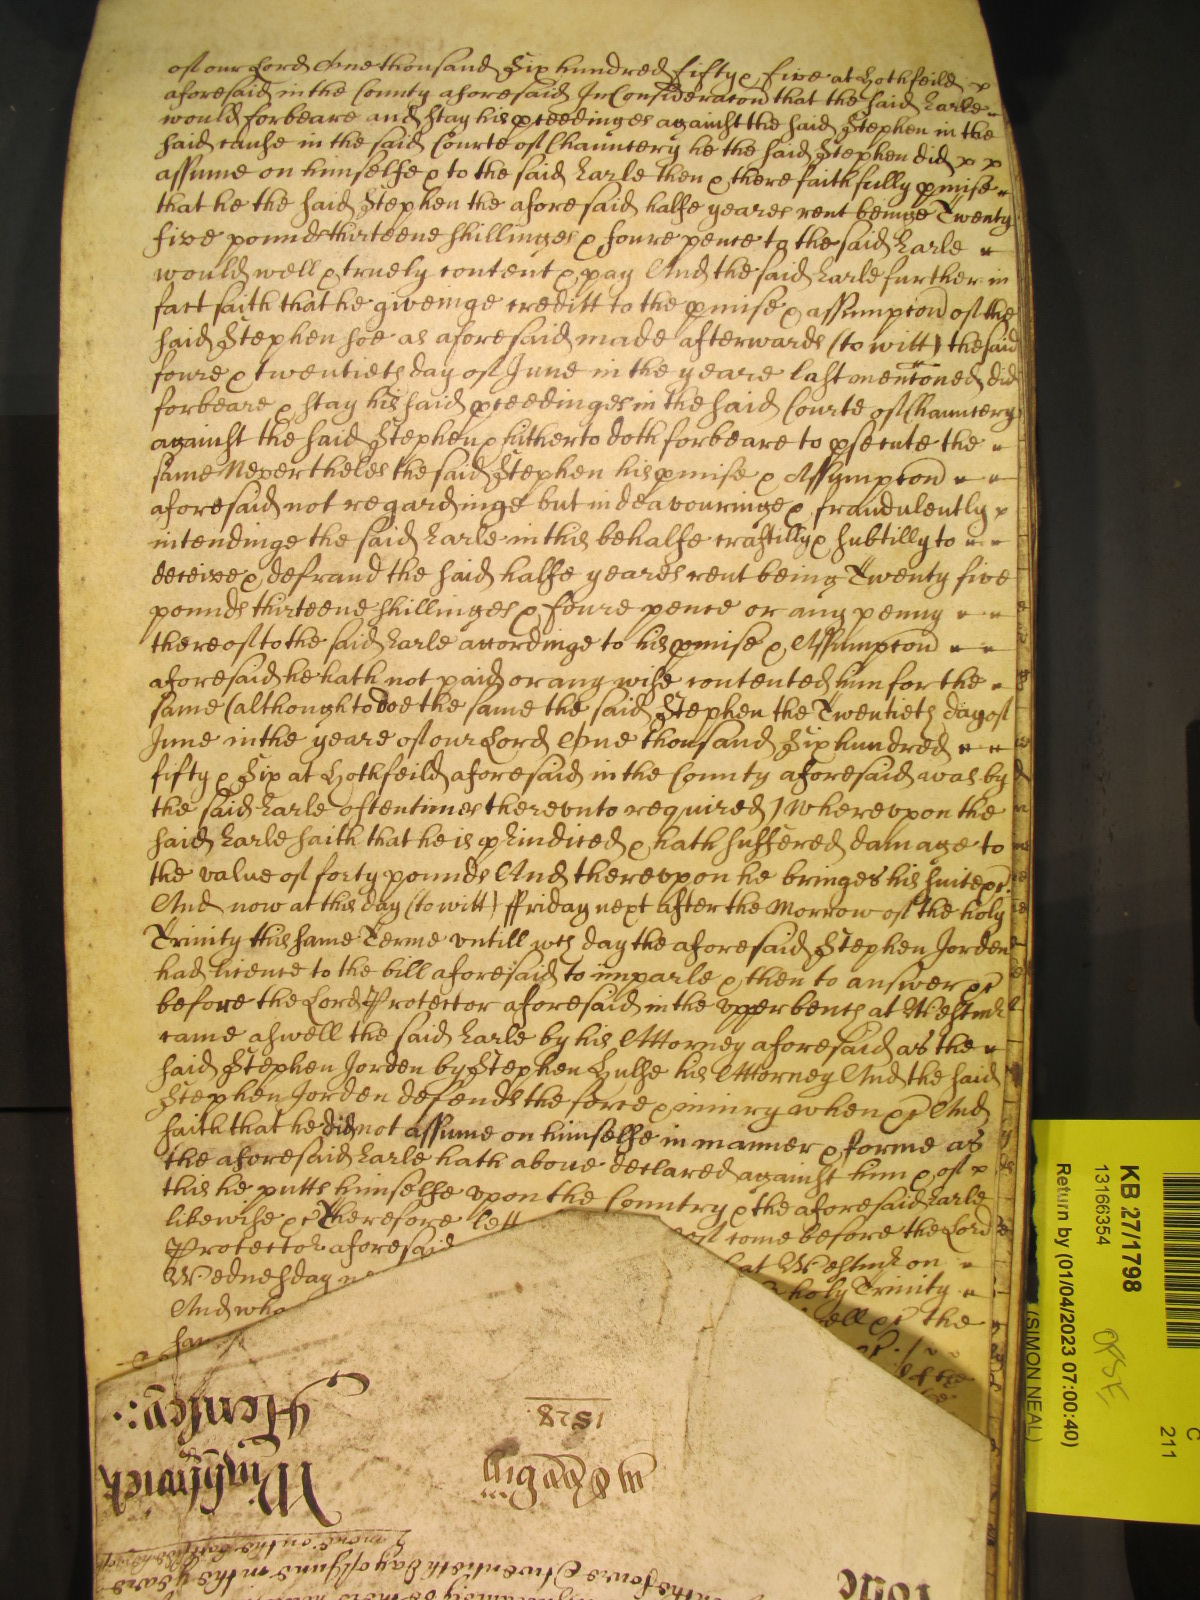 of our Lord One thousand Six hundred fifty & five at Hothfeild
aforesaid in the County aforesaid In Consideracon that the said Earle
would forbeare and stay his pceedinges against the said Stephen in the
said cause in the said Courte of Chauncery he the said Stephen did
assume on himselfe & to the said Earle then & there faithfully pmise
that he the said Stephen the aforesaid halfe yeares rent beinge Twenty
five pounds thirteene shillinges & foure pence to the said Earle
would well & truely content & pay And the said Earle further in
fact saith that he giveinge creditt to the pmise & assumpcon of the
said Stephen soe as aforesaid made afterwards (to witt) the said
foure & twentieth day of June in the yeare last mencioned did
forbeare & stay his said pceedinges in the said Courte of Chauncery
against the said Stephen & hitherto doth forbeare to psecute the
same Nevertheles the said Stephen his pmise & Assumpcon
aforesaid not regardinge but indeavouringe & fraudulently
intendinge the said Earle in this behalfe craftilly & subtilly to
deceive & defraud the said halfe yeares rent being Twenty five
pounds thirteene shillinges & foure pence or any penny
thereof to the said Earle accordinge to his pmise & Assumpcon
aforesaid he hath not paid or any wise contented him for the
same (although to doe the same the said Stephen the Twentieth day of
June in the yeare of our Lord One thousand Six hundred
fifty & Six at Hothfeild aforesaid in the County aforesaid was by
the said Earle oftentimes therevnto required) Wherevpon the
said Earle saith that he is pjudiced & hath suffered damage to
the value of forty pounds And therevpon he bringes his suite &c
And now at this day (to witt) Friday next after the Morrow of the holy
Trinity this same Terme vntill wch day the aforesaid Stephen Jorden
had licence to the bill aforesaid to imparle & then to answer &c
before the Lord Protector aforesaid in the vpper bench at Westmr
came aswell the said Earle by his Attorney aforesaid as the
said Stephen Jorden by Stephen Hulse his Attorney And the said
Stephen Jorden defends the force & iniury when &c And
saith that he did not assume on himselfe in manner & forme as
the aforesaid Earle hath above declared against him & of
this he putts himselfe vpon the Country & the aforesaid Earle
likewise &c Therefore lett come before the Lord
Protector aforesaid at Westmr on
Wednesday holy Trinity
And who &c the
Hensey:
1828
Wightwick
KB 27/1798
13166354
Return by (01/04/2023 07:00:40)
(SIMON NEAL)
C
211